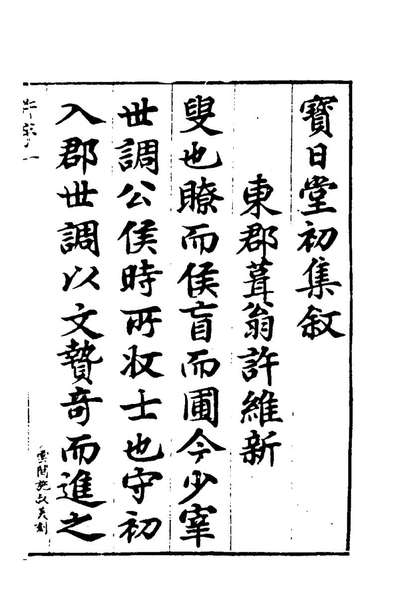 寶日堂初集敘
東郡葺翁許維新
叟也瞭而侯盲而圃今少宰
世調公侯時所收士也守初
入郡世調以文贄奇而進之